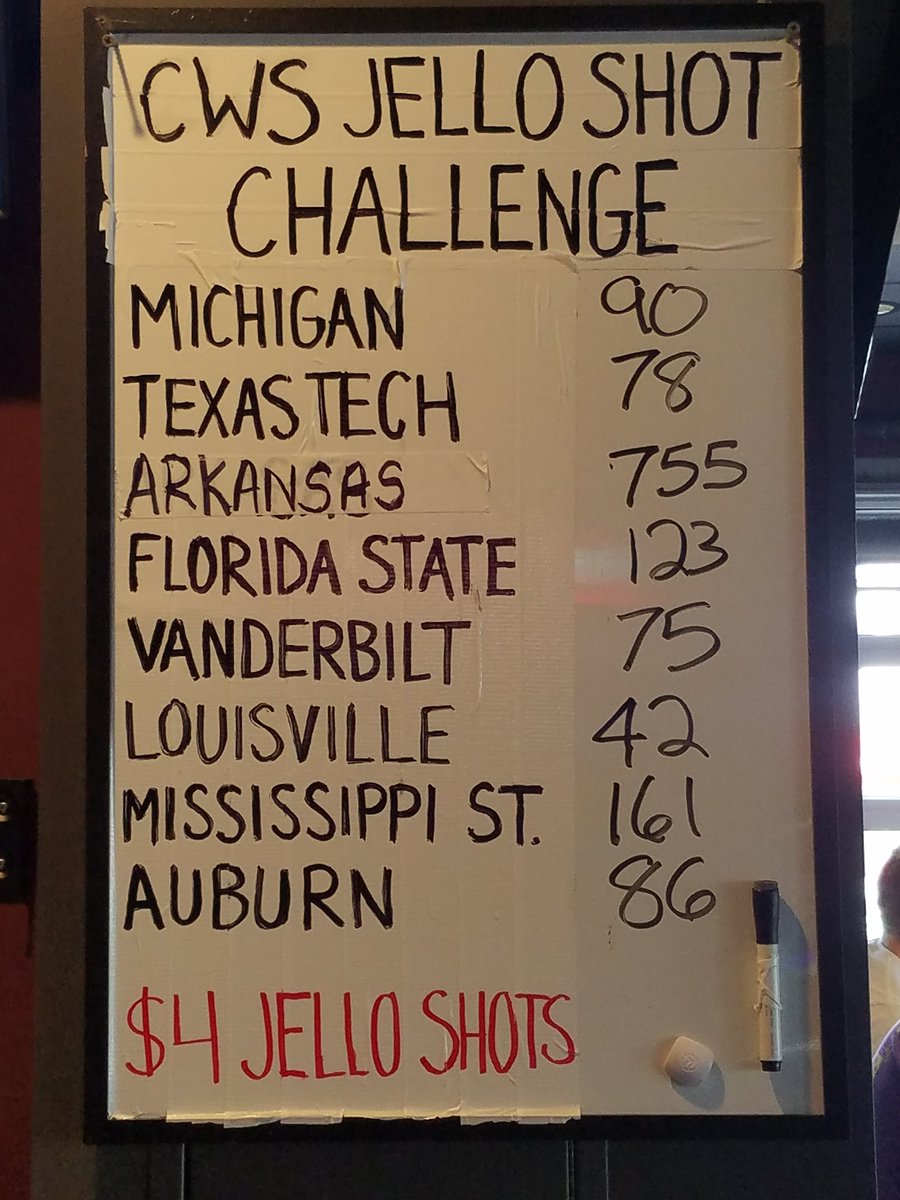 CWS JELLO SHOT
CHALLENGE
MICHIGAN 90
TEXAS TECH 78
ARKANSAS 755
FLORIDA STATE 123
VANDERBILT 75
LOUISVILLE 42
MISSISSIPPI ST. 161
AUBURN 86
$4 JELLO SHOTS